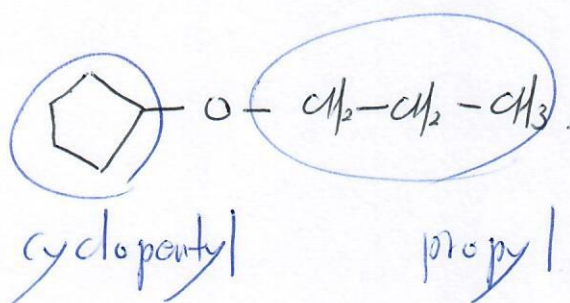 — O — CH₂—CH₂—CH₃.
cyclopentyl propyl